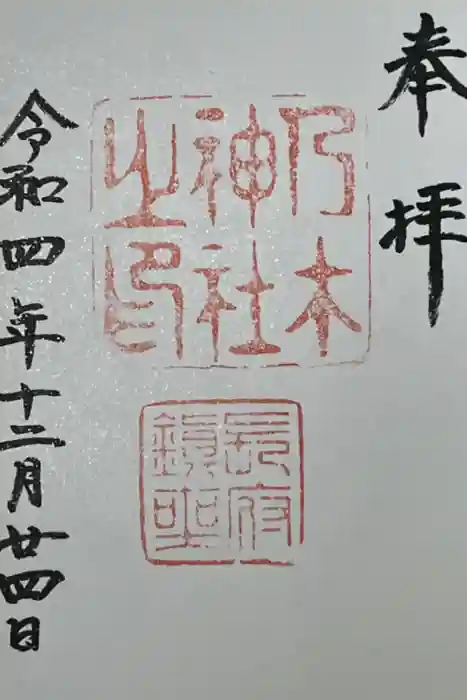 奉拝
乃木
神社
之印
長府
鎮聖
令和四年十二月廿四日